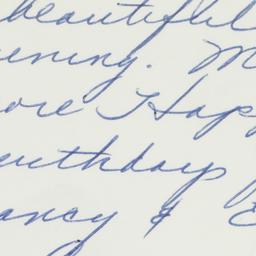 beautiful
ening. M
ore Hap
irthday
ancy & E